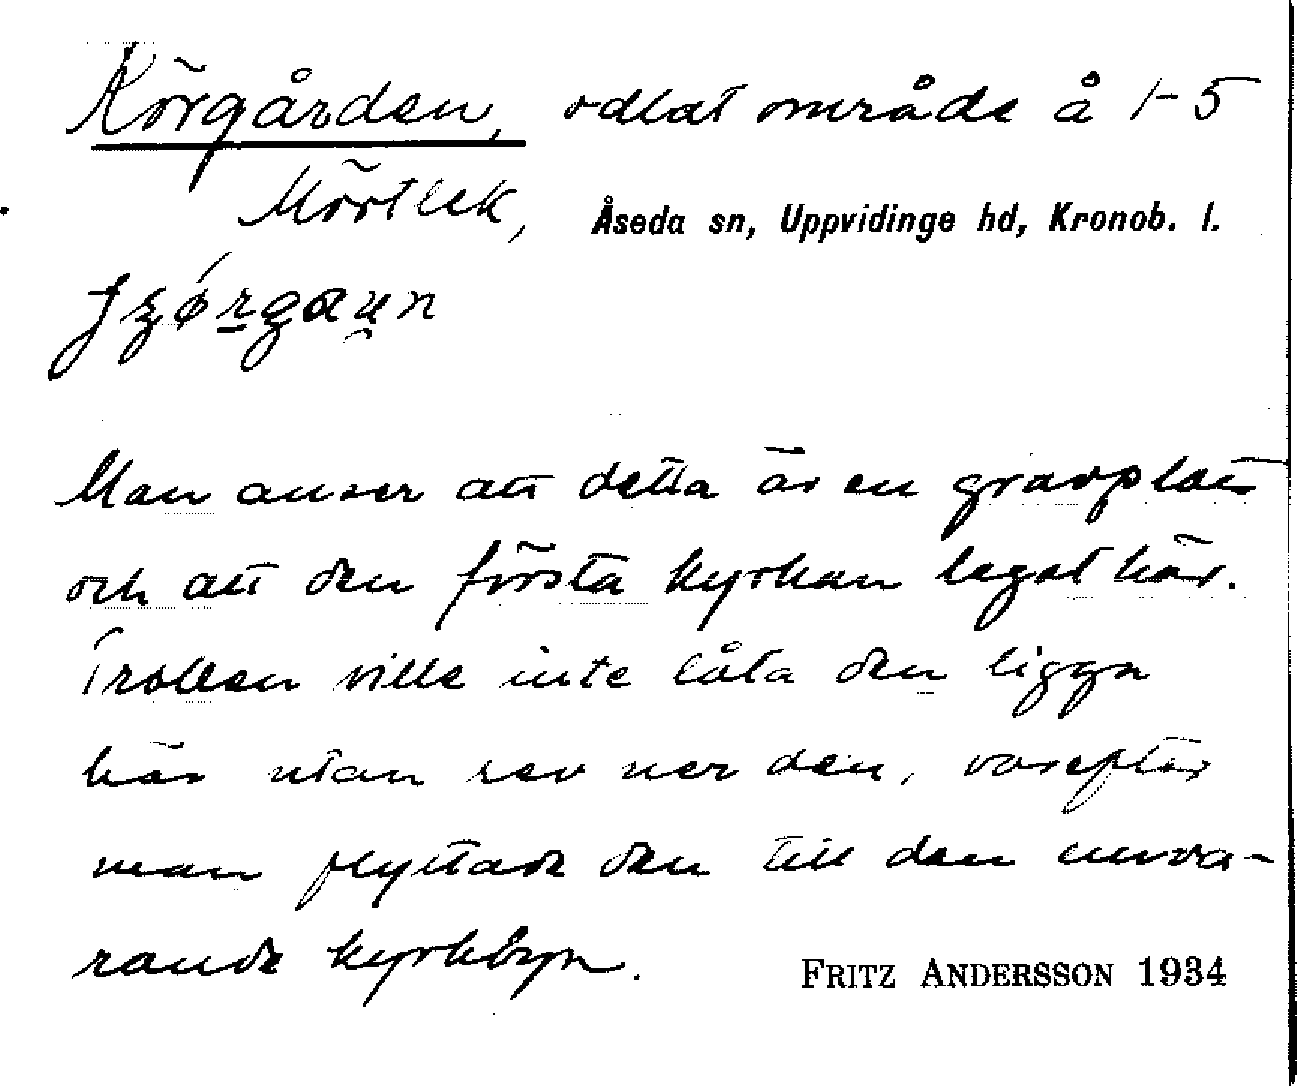 Körgården, odlat område å 1-5
Mörtlek, Åseda sn, Uppvidinge hd, Kronob. l.
Man anser att detta är en gravplats
och att den första kyrkan legat här.
Trollen ville inte låta den ligga
här utan rev ner den, varefter
man flyttade den till den nuva-
rande kyrkbyn. FRITZ ANDERSSON 1934